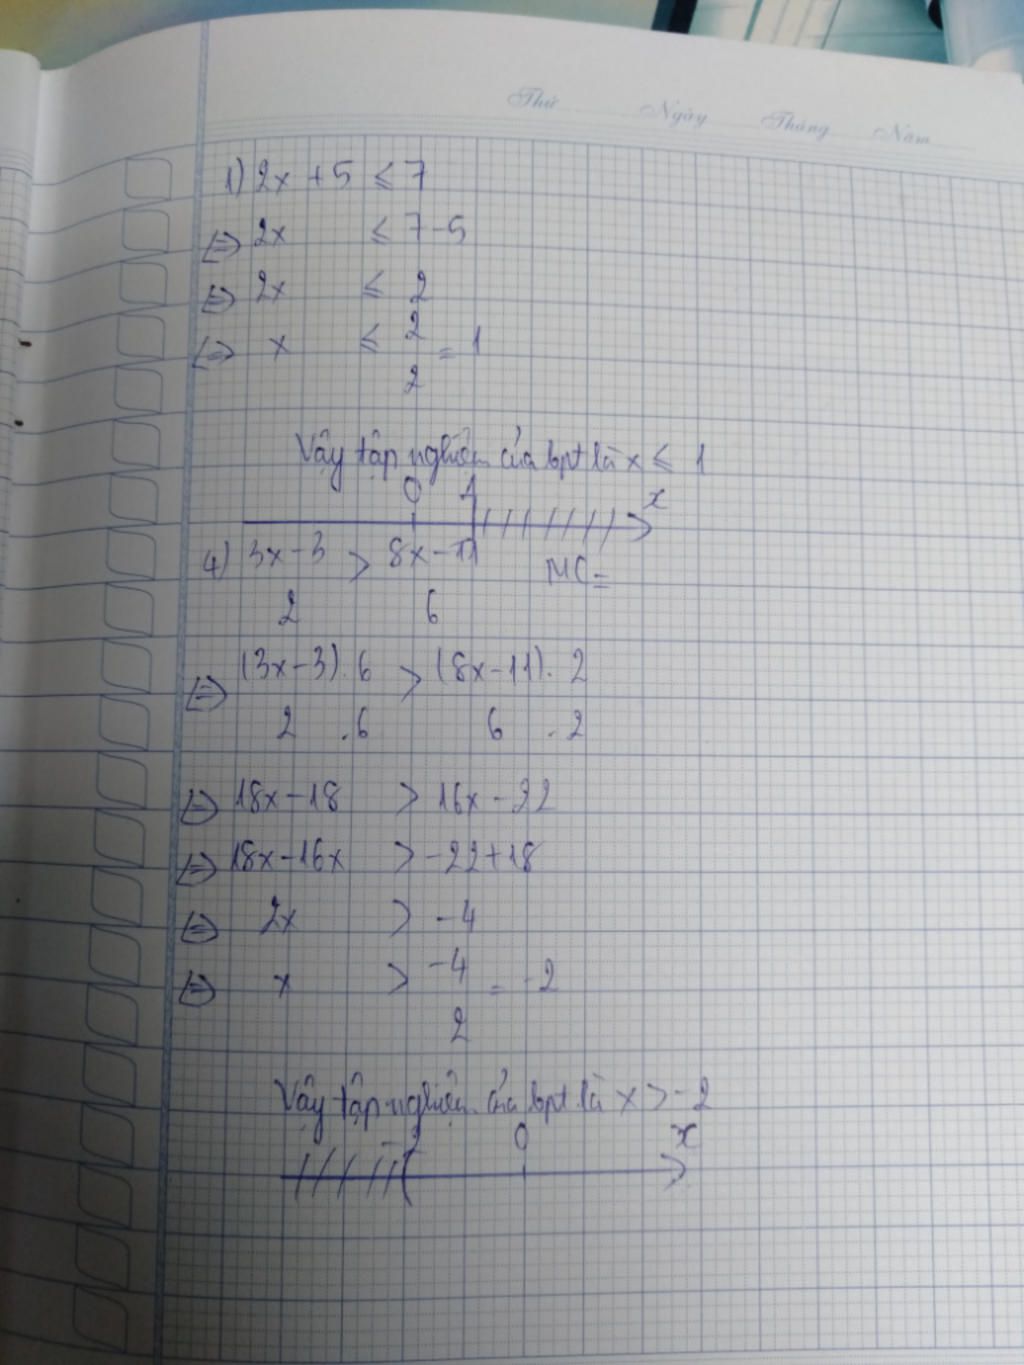 Thứ Ngày Tháng Năm
1) 2x + 5 ≤ 7
⇔ 2x ≤ 7 - 5
⇔ 2x ≤ 2
⇔ x ≤ 2/2 = 1
Vậy tập nghiệm của bpt là x ≤ 1
0 1 x
4) 3x - 3 > 8x - 11 MC =
2 6
⇔ (3x - 3) . 6 > (8x - 11) . 2
2 . 6 6 . 2
⇔ 18x - 18 > 16x - 22
⇔ 18x - 16x > -22 + 18
⇔ 2x > -4
⇔ x > -4/2 = -2
Vậy tập nghiệm của bpt là x > -2
-2 0 x